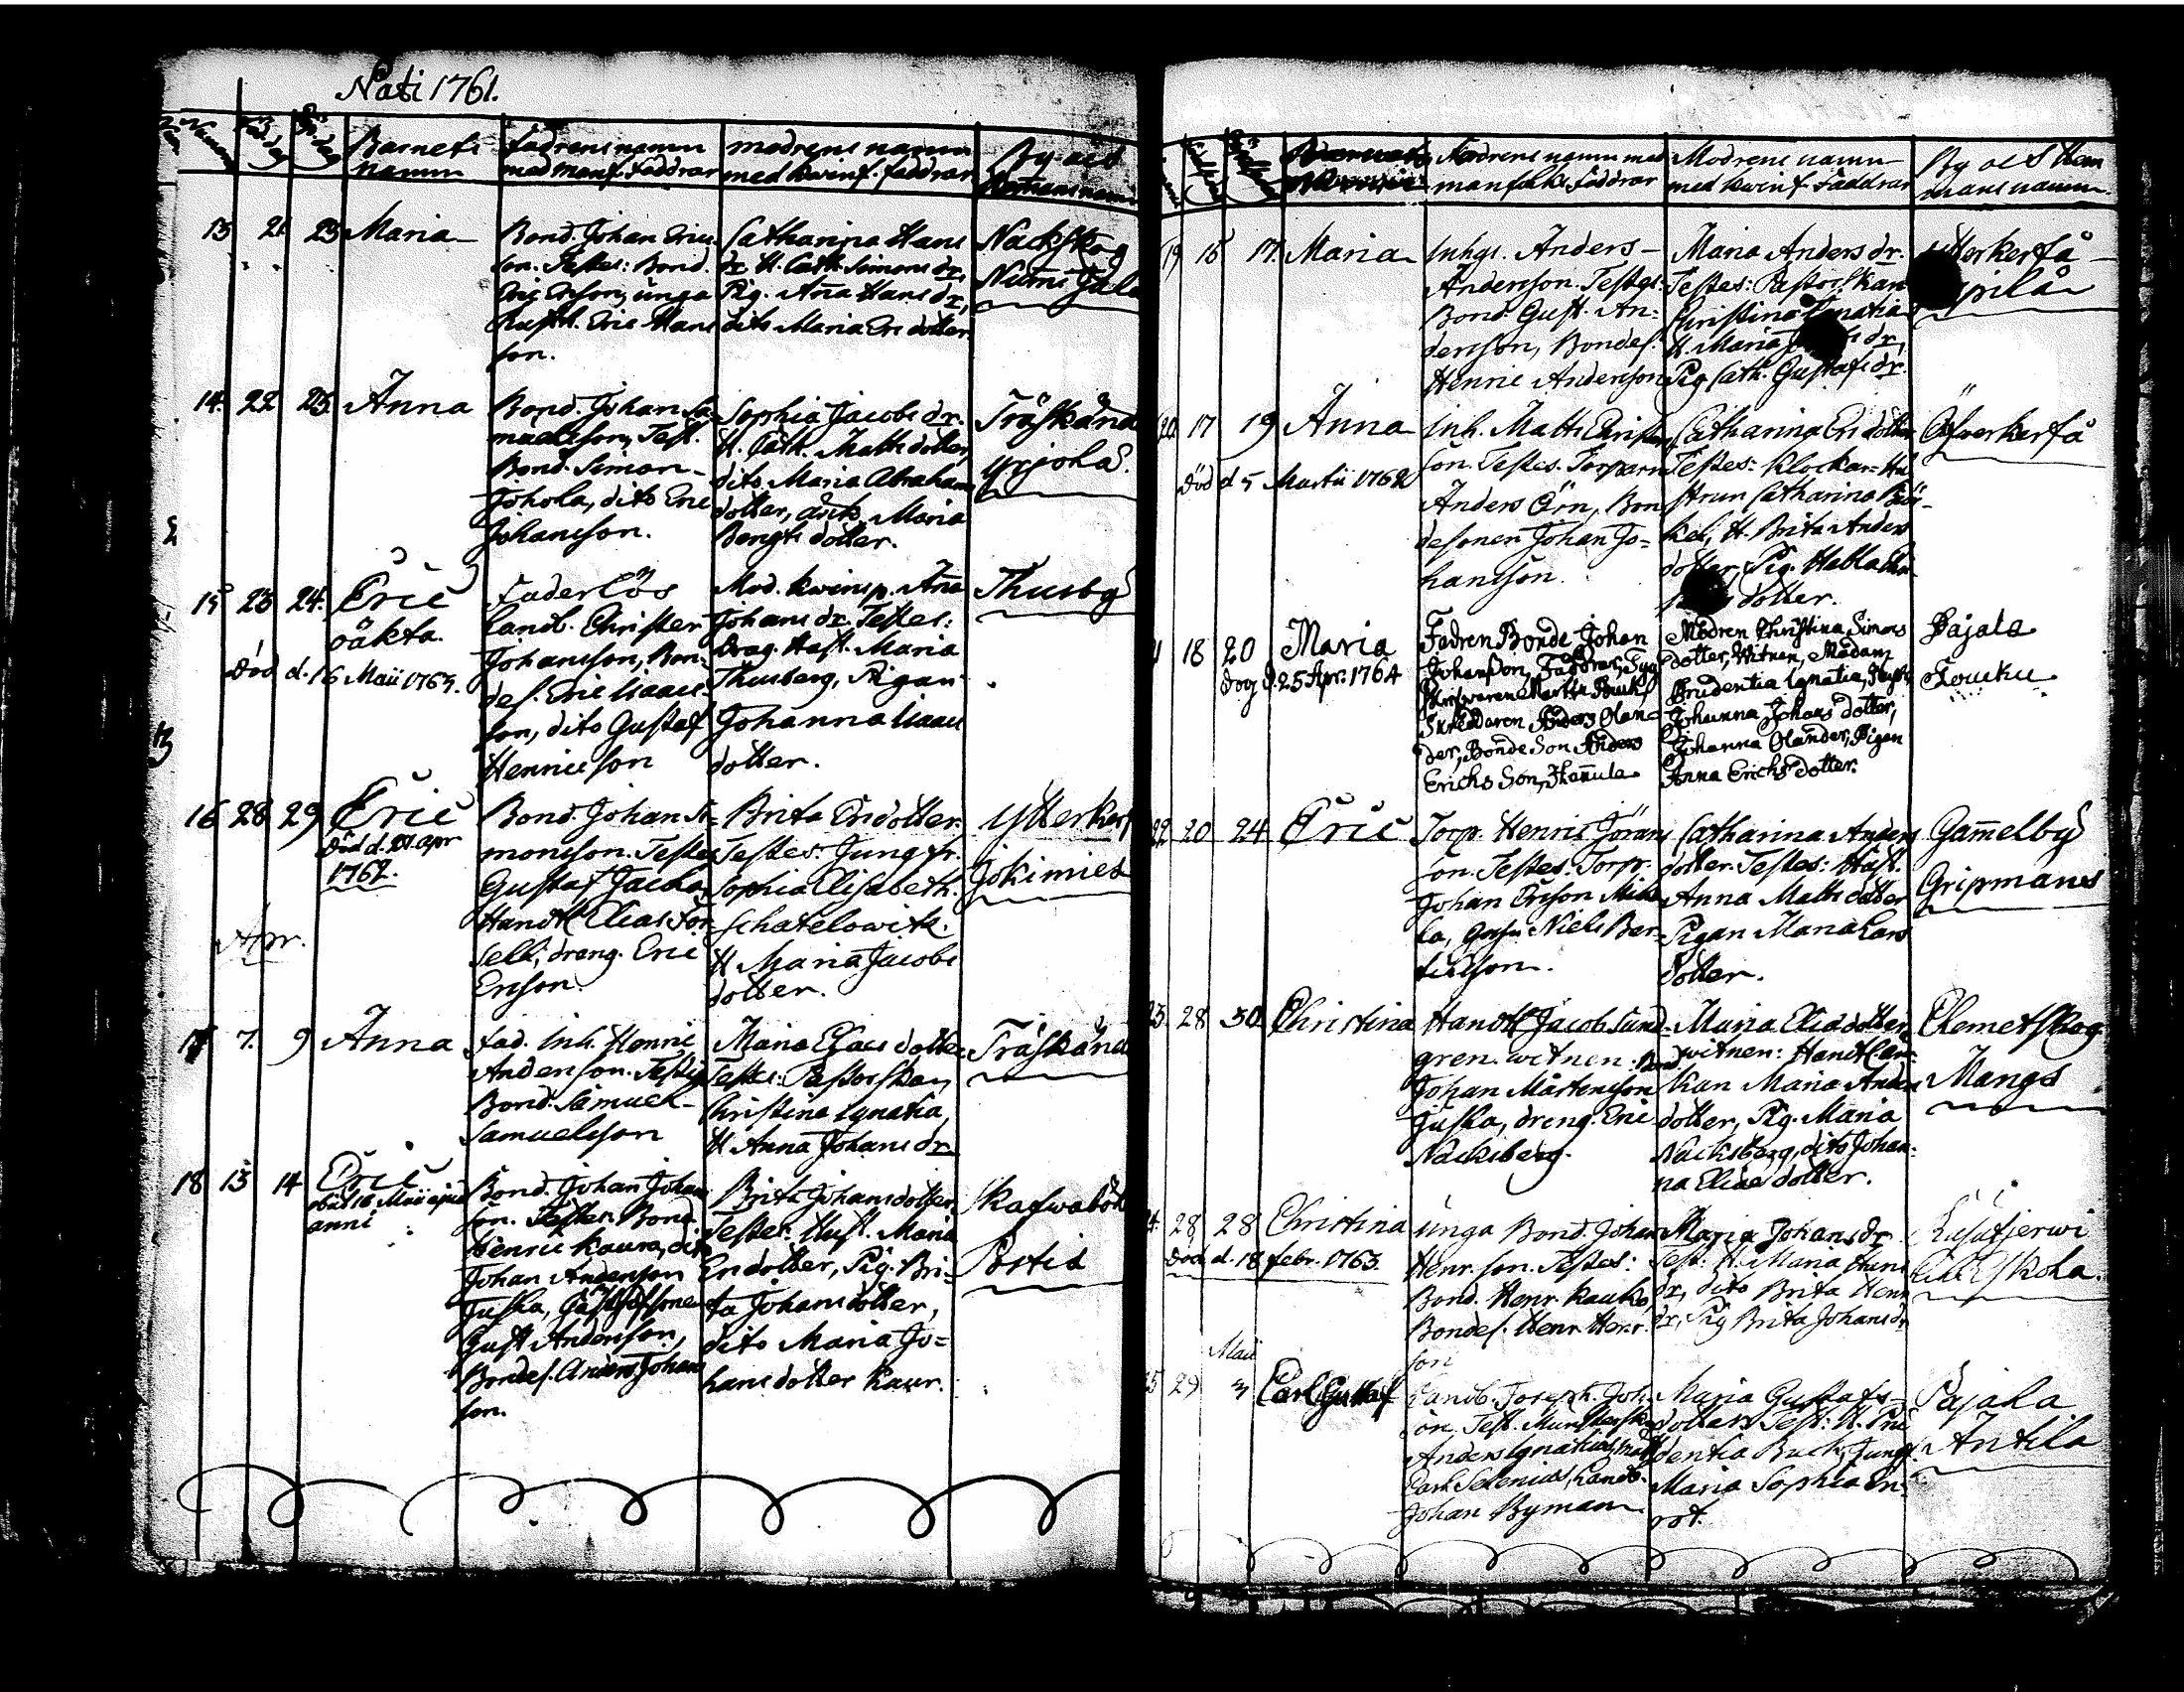 Nati 1761.
Barnets namn
Fadrens namn med manf. faddrar
modrens namn med kwinf. faddrar
By och
13 21 23 Maria
Bond. Johan Erics
son. Testes: Bond.
Eric Erson, unga
Eric Hans
son.
Catharina Hans
dr. H. Cath. Simons dr,
Pig. Aña Hans dr,
dito Maria Ers dotter.
Nackskog
14. 22 23 Anna
Bond. Johan Sa-
muelsson, Test.
Bond. Simon
Johola, dito Eric
Johansson.
Sophia Jacobs dr.
H. Cath. Matts dotter,
dito Maria Abrahams
dotter, Maria
Bengts dotter.
Träskända
yrjola.
15 23 24. Eric
oäkta.
död d. 16 Maii 1765.
Faderlös
Landb. Christer
Johansson, Bon-
des. Eric Isaac-
son, dito Gustaf
Henricsson
Mod. kwinsp. Aña
Johans dr. Testes:
Drag. Hust. Maria
Thusberg, Pigan
Johanna Isaacs
dotter.
Thusby
16 28 29 Eric
död d. apr
1762.
Bond. Johan Si-
monsson. Testes
Gustaf Jacobs
Handtl. Elias For-
sell, dreng. Eric
Erson.
Brita Ers dotter.
Testes: Jungfr.
Sophia Elisabeth
Schatelowitz.
H. Maria Jacobs
dotter.
Ytterkers
Jokimies
Apr.
17 7. 9 Anna
Fad. Inh. Henric
Andersson. Testes
Bond. Samuel
Samuelsson
Maria Elias dotter
Testes: Pastorskan
Christina Ignatia,
H. Anna Johans dr
Träskända
18 13 14 Eric
obiit 16 Maii ejusd
anni
Bond. Johan Johans
son. Testes. Bond.
Henric Kaura, dito
Johan Andersson
Juska,
Gust Andersson,
Bondes. Anders Johans
son.
Brita Johansdotter
Testes: Hust. Maria
Ersdotter, Pig. Bri-
ta Johansdotter,
dito Maria Jo-
hansdotter Kaur.
Skafwaböle
Postis
Fadrens namn med
manfolks faddrar
Modrens namn
med kwinf. faddrar
By och Hem
mans namn.
19 16 17. Maria
Inhys. Anders
Andersson. Testes:
Bond. Gust. An-
dersson, Bondes.
Henric Andersson
Maria Anders dr.
Testes: Pastorskan
Christina Ignatia
H. Maria
Pig. Cath. Gustafs dr.
Ytterkerfå
20. 17 19 Anna
död d 5 Martii 1762
Inh. Matts Christers
son. Testes. Torparn
Anders Örn, Bon
desonen Johan Jo-
hansson.
Catharina Ers dotter
Testes: Klockar-Hu
strun Catharina
H. Brita Anders
dotter, Pig.
dotter.
Öfverkerfå
18 20 Maria
Dog d. 25 Apr. 1764
Fadren Bonde Johan
Johansson, Faddrar,
Martin Buck,
Skreddaren Anders Olan-
der, Bonde Son Anders
Erichs Son, Hannula
Modren Christina Simons
dotter, Witnen, Madam
Prudentia Ignatia, Hust.
Johanna Johans dotter,
Johanna Olander, Pigan
Anna Erichs dotter.
Pajala
Kouku
22. 20 24. Eric
Torp. Henric Jörans
son. Testes. Torp.
Johan Erson
Niels Ber-
tilsson.
Catharina Anders
dotter. Testes: Hust.
Anna Matts dotter
Pigan Maria Lars
dotter.
Gamelby
Gripmans
23. 28 30. Christina
Handtl. Jacob Sund-
gren. witnen. Bond.
Johan Mårtensson
Juska, dreng. Eric
Nacksberg.
Maria Elias dotter.
witnen:
Maria Anders
dotter, Pig. Maria
Nacksberg, dito Johan-
na Elias dotter.
Clemetskog
Mangs
24. 28 28 Christina
död d. 18 febr. 1763.
unga Bond. Johan
Henr. son. Testes:
Bond. Henr. Kauko,
Bondes. Henr. Henr.
son
Maria Johans dr
Test: H. Maria Hans
dr, dito Brita Henr
dr, Pig Brita Johans dr
Rusutjerwi
Maii
25 29 3 Carl Gustaf
Landb. Joseph. Joh.
son. Test.
Anders Ignatius,
Carl Selenius, Landb.
Johan Byman
Maria Gustafs
dotter. Test: H. Pru
dentia Buck, Jungf.
Maria Sophia En-
rot.
Pajala
Antila